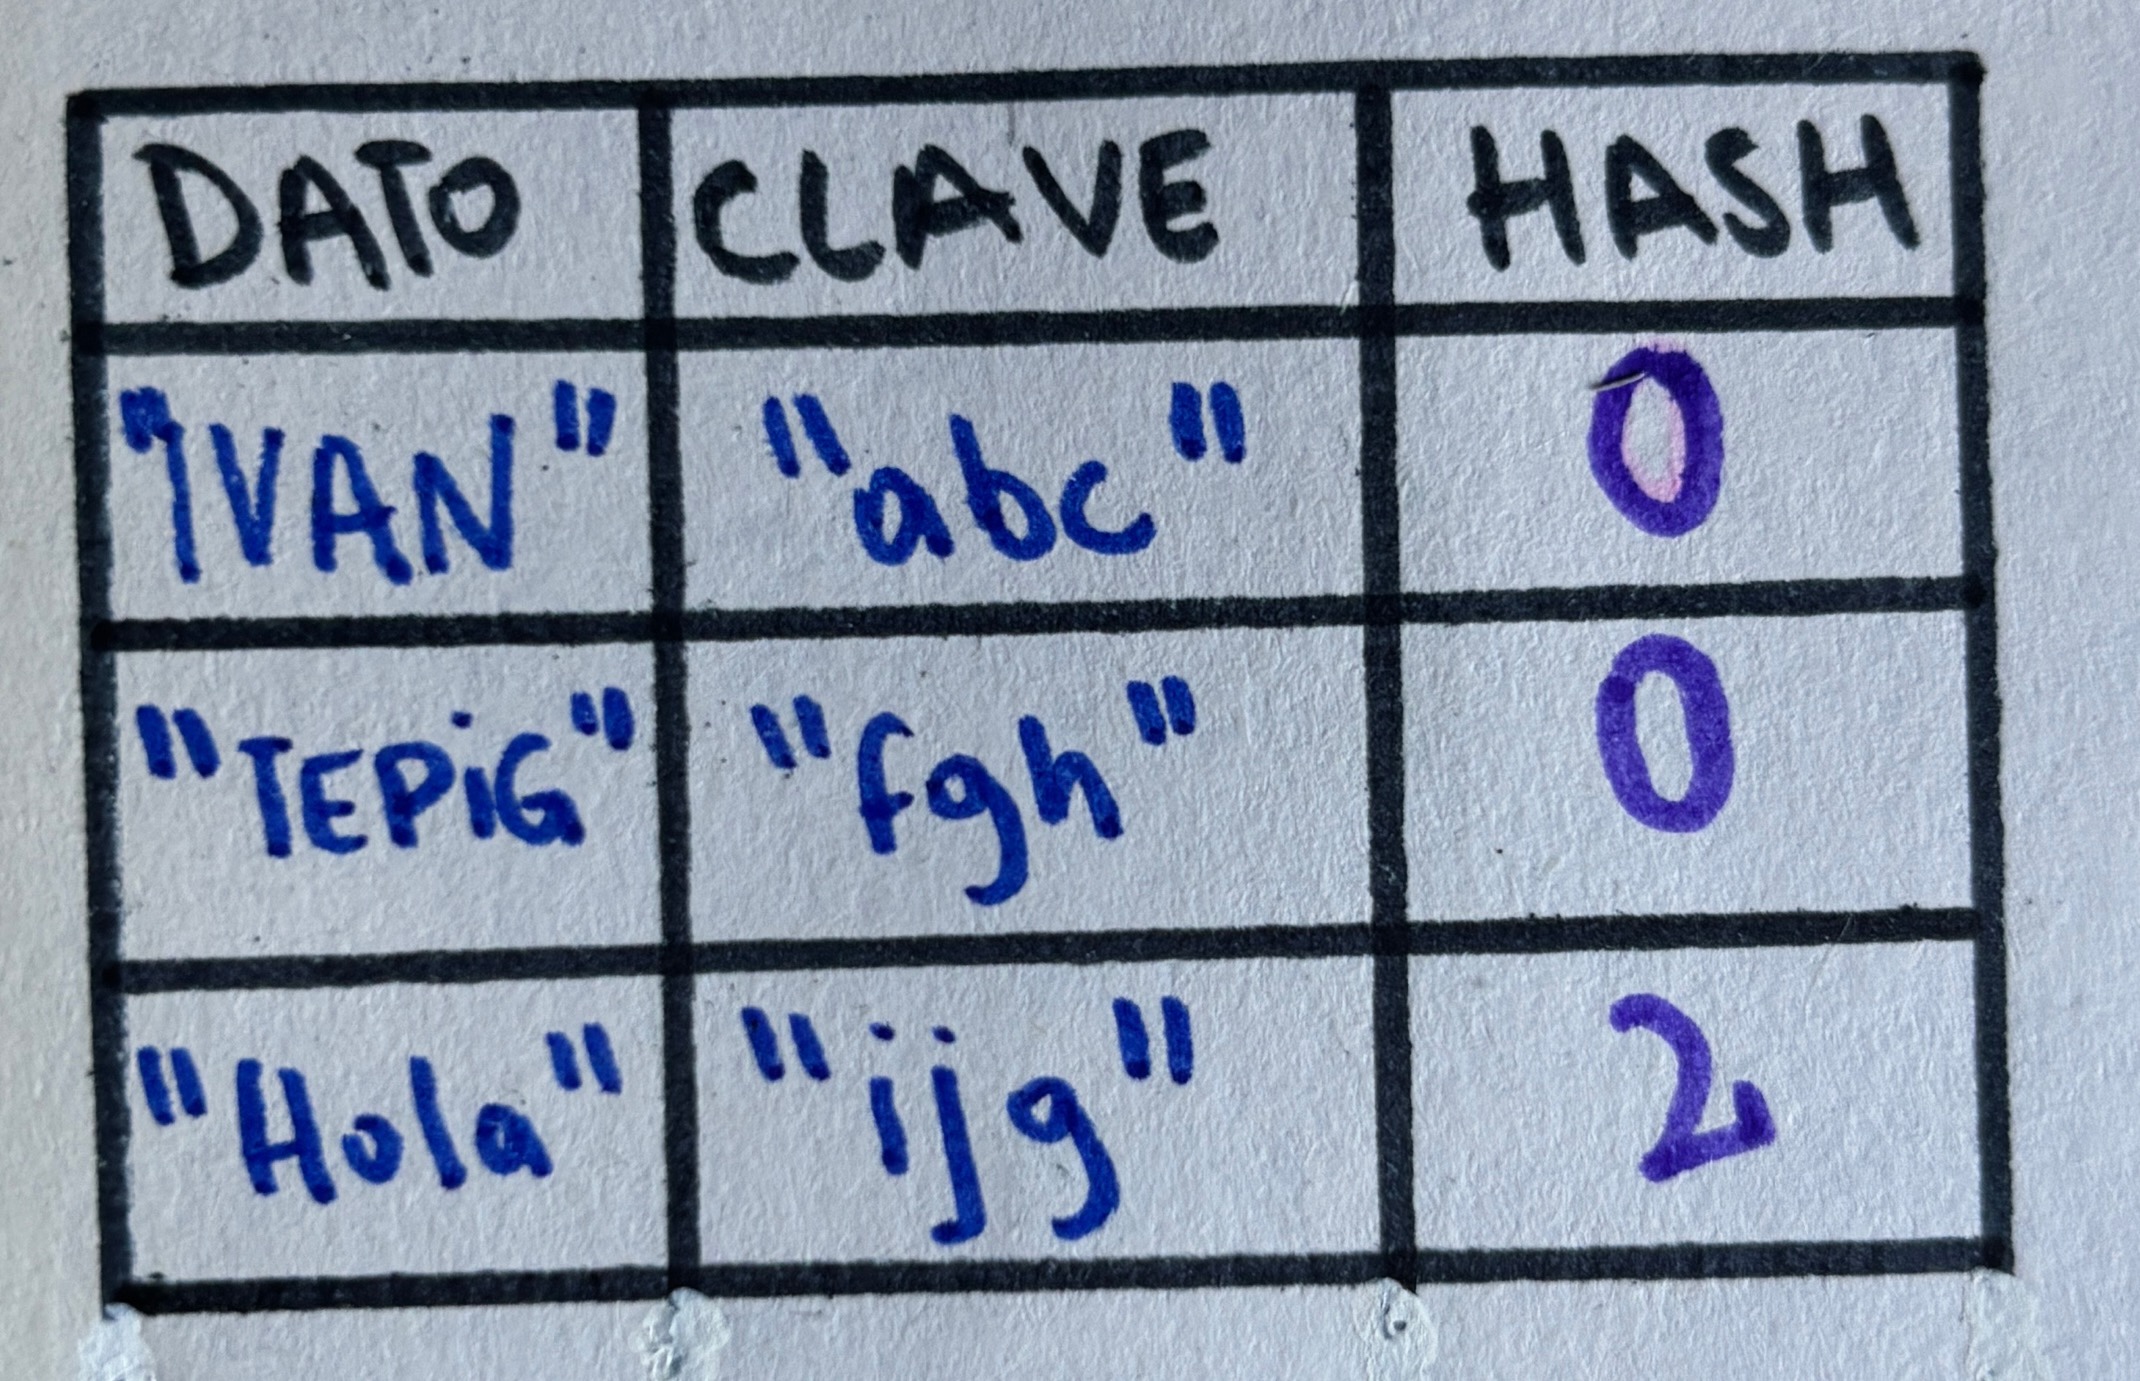 DATO CLAVE HASH
"IVAN" "abc" 0
"TEPiG" "fgh" 0
"Hola" "ijg" 2